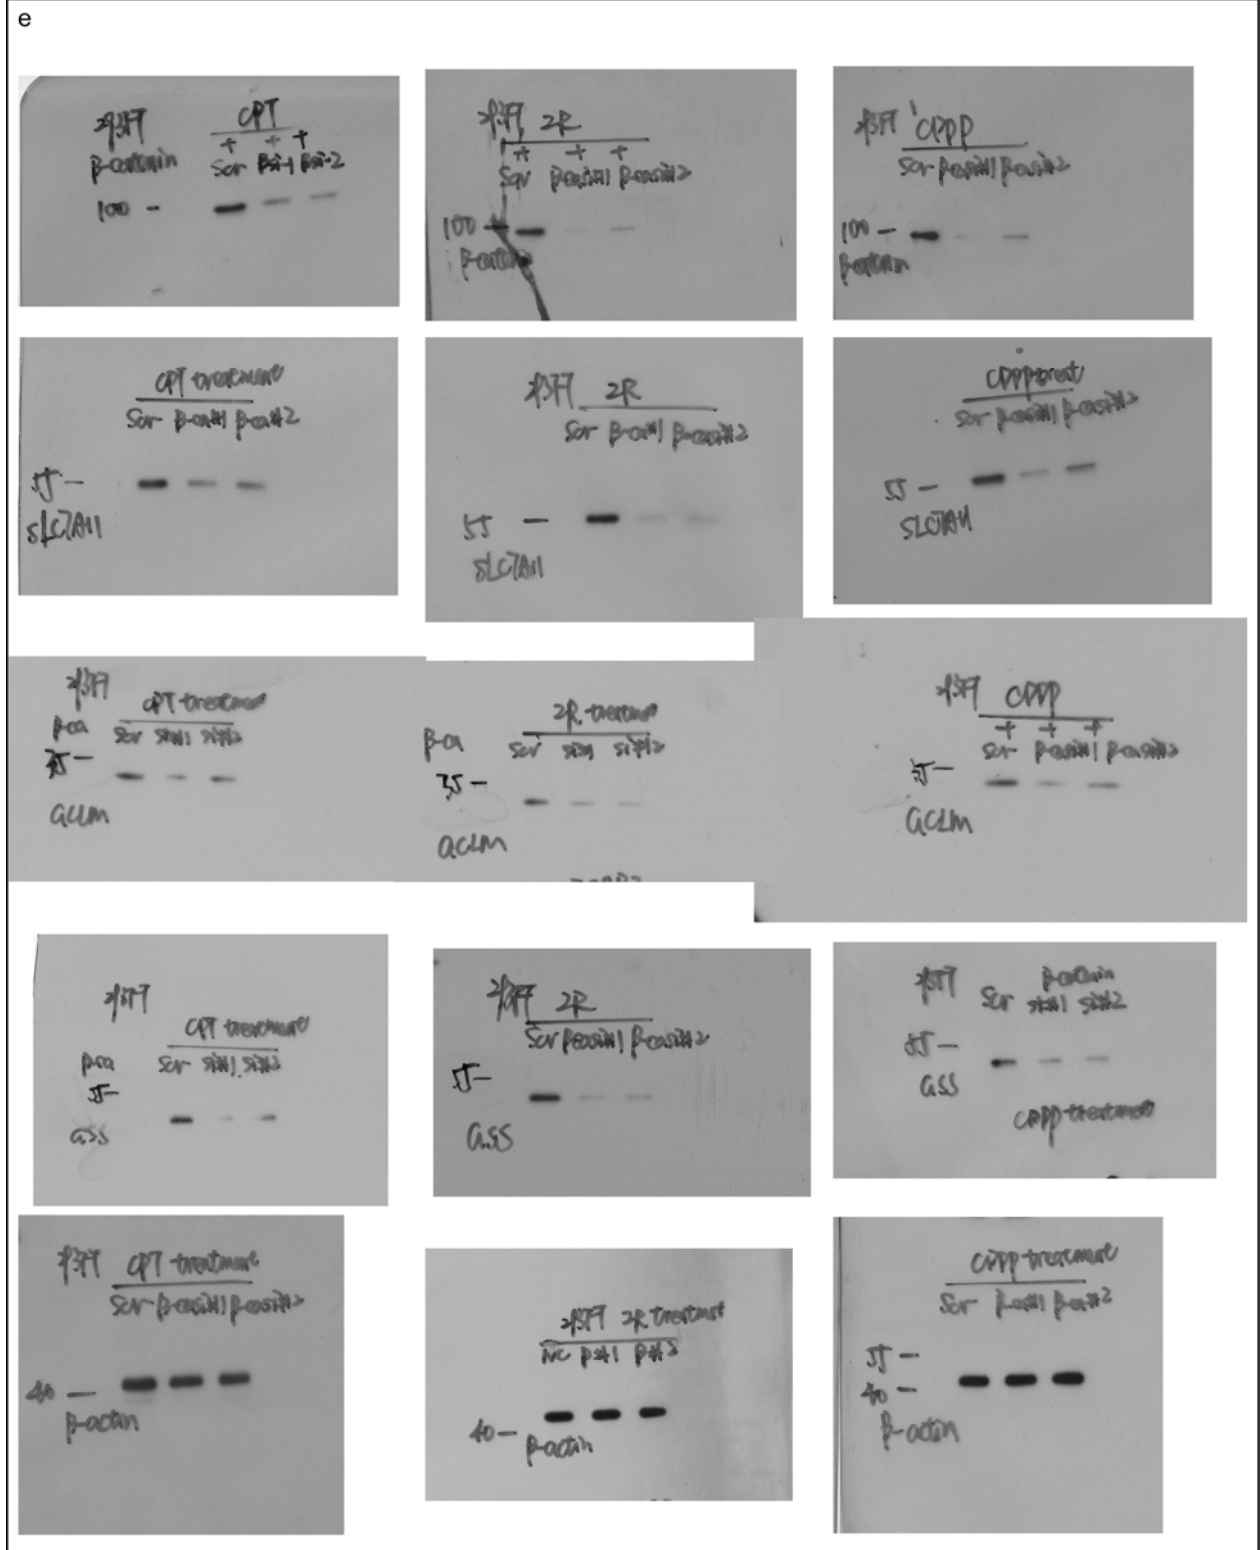 e
293FT CPT
+ + +
β-catenin Scr βsi-1 βsi-2
100 -
293FT 2R
+ + +
Scr β-casi#1 β-casi#2
100 -
β-catenin
293FT CDDP
Scr β-casi#1 β-casi#2
100 -
β-catenin
CPT treatment
Scr β-ca#1 β-ca#2
55 -
SLC7A11
293FT 2R
Scr β-ca#1 β-casi#2
55 -
SLC7A11
CDDP treat
Scr β-casi#1 β-casi#2
55 -
SLC7A11
293FT CPT treatment
β-ca Scr si#1 si#2
35 -
GCLM
2R treatment
β-ca Scr si#1 si#2
35 -
GCLM
293FT CDDP
+ + +
Scr β-casi#1 β-casi#2
35 -
GCLM
293FT
CPT treatment
β-ca Scr si#1 si#2
55 -
GSS
293FT 2R
Scr β-casi#1 β-casi#2
55 -
GSS
293FT Scr β-catenin
si#1 si#2
55 -
GSS
CDDP treatment
293FT CPT treatment
Scr β-casi#1 β-casi#2
40 -
β-actin
293FT 2R treatment
NC βsi#1 β#2
40 -
β-actin
CDDP treatment
Scr β-ca#1 β-ca#2
55 -
40 -
β-actin